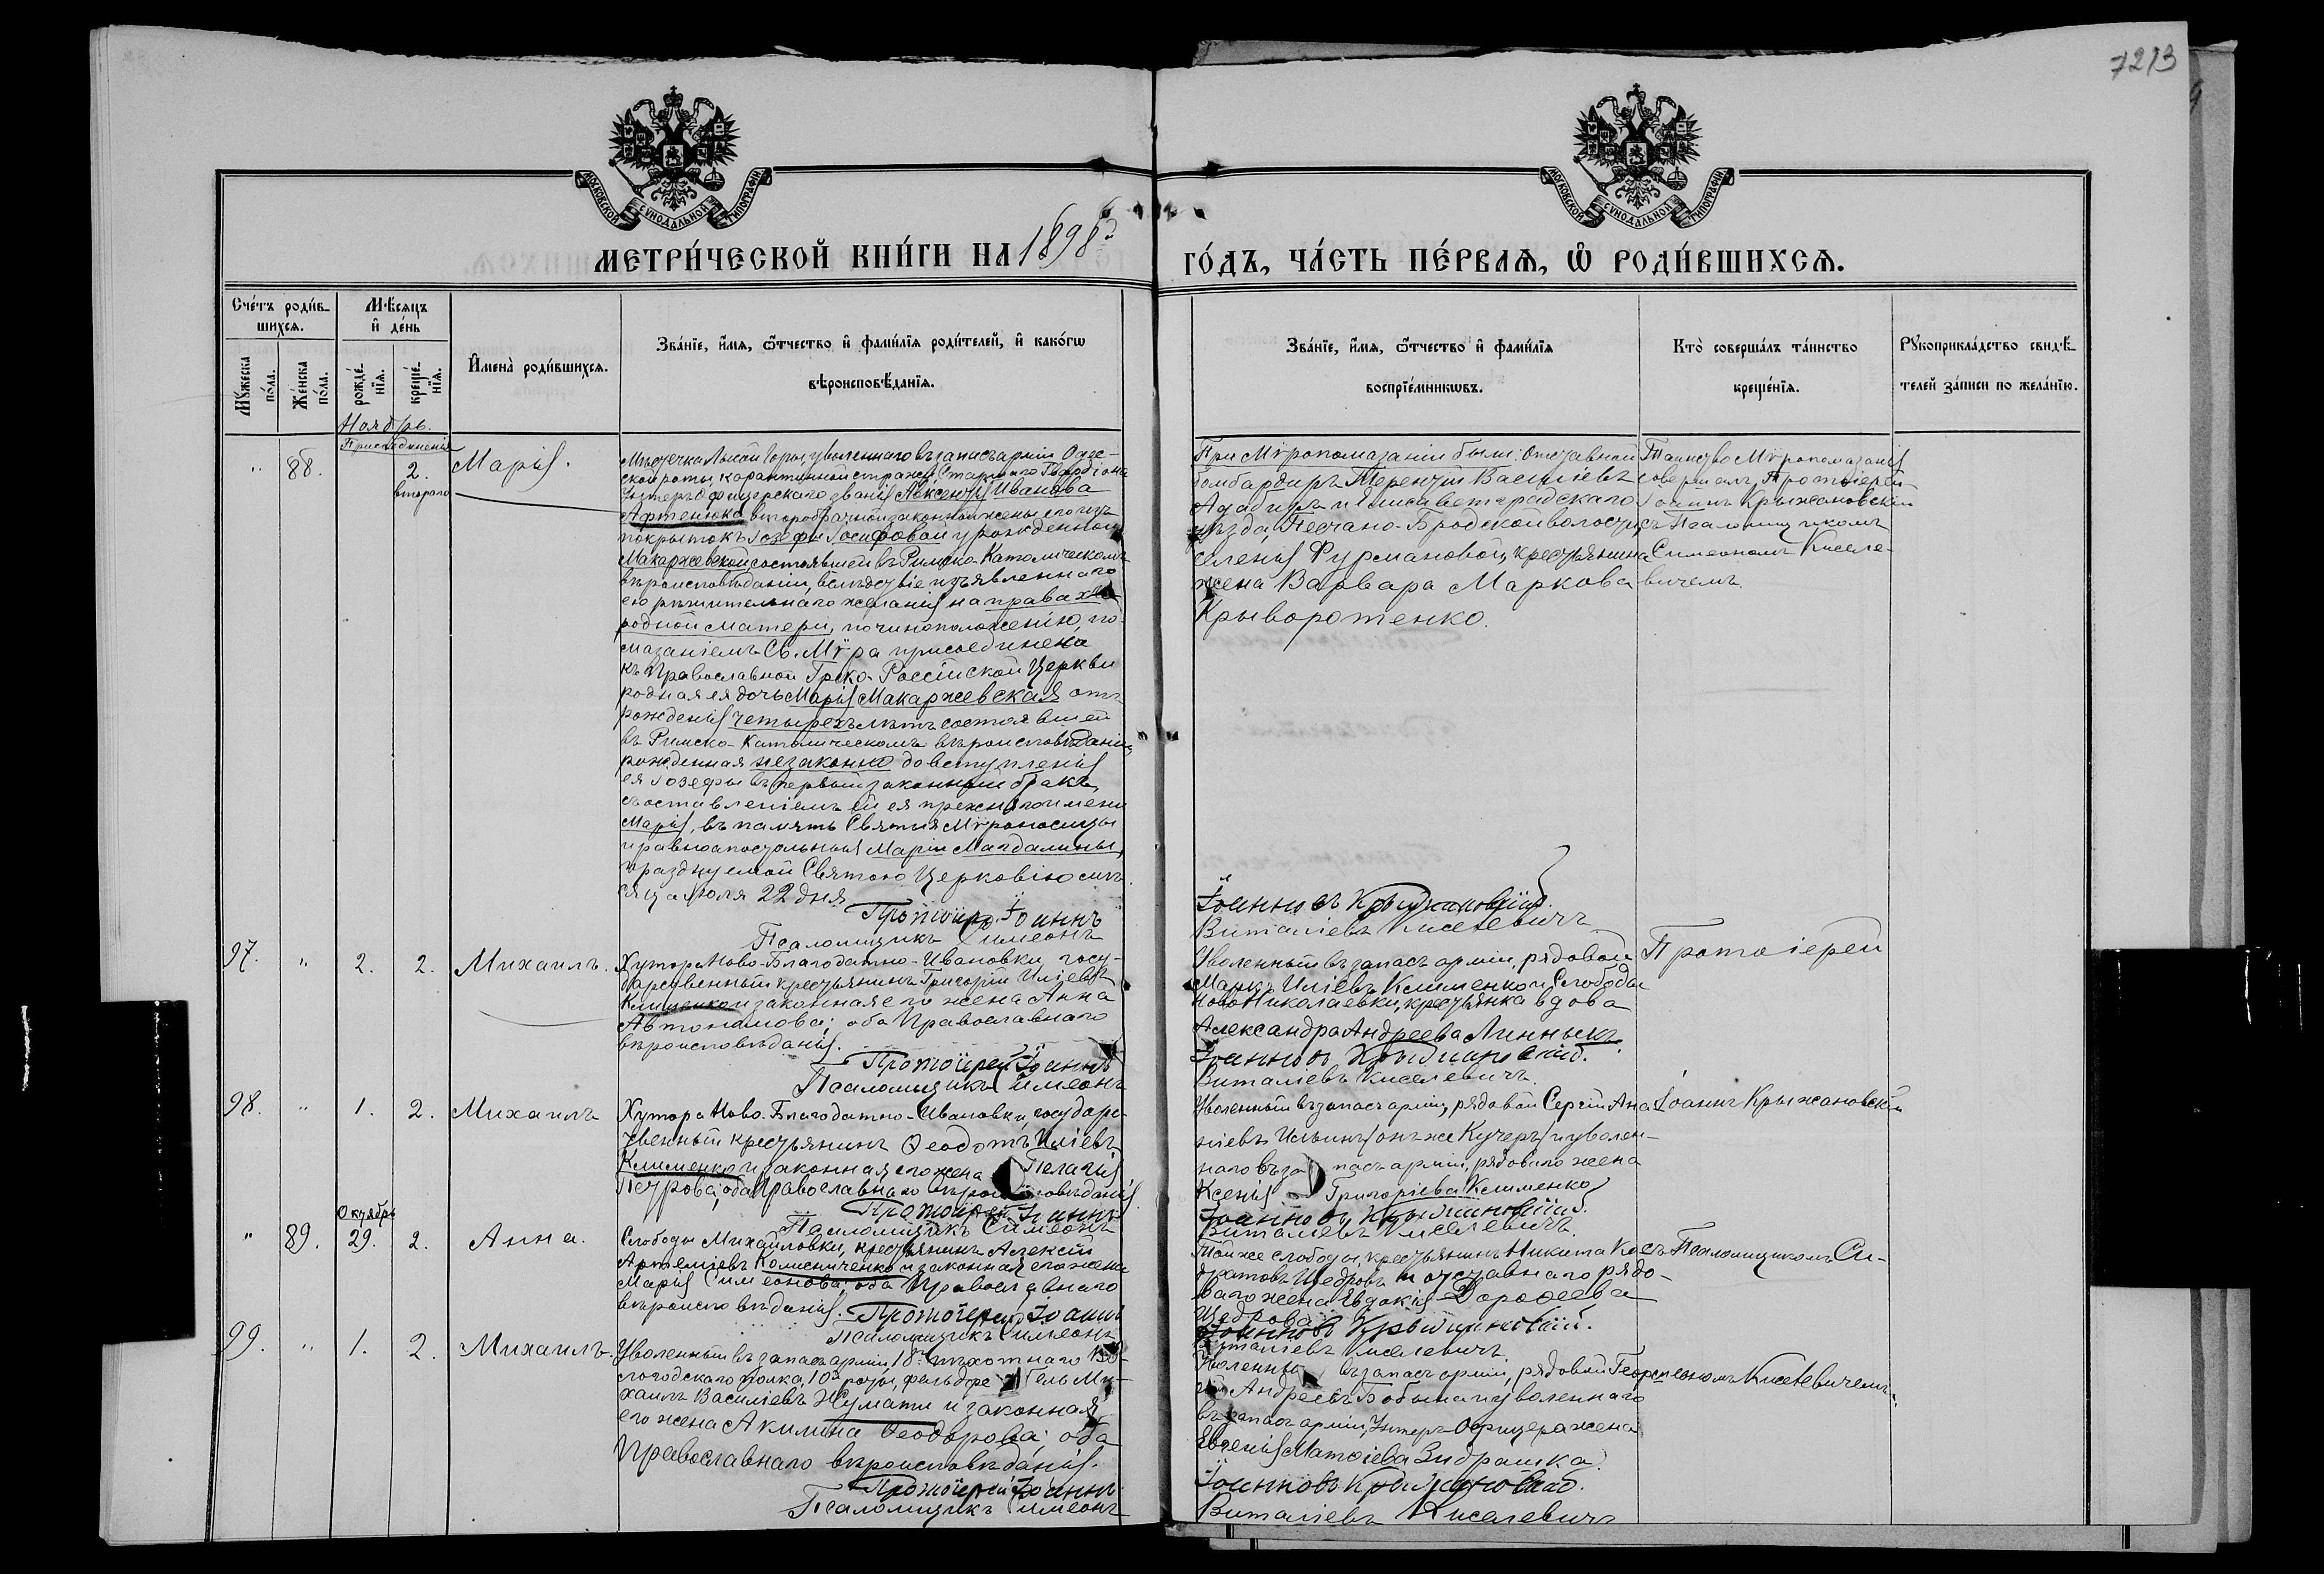 7213
МОСКОВСКОЙ СУНОДАЛЬНОЙ ТИПОГРАФІИ
МОСКОВСКОЙ СУНОДАЛЬНОЙ ТИПОГРАФІИ
МЕТРИ́ЧЕСКОЙ КНИ́ГИ НА 1898й ГО́ДЪ, ЧА́СТЬ ПЕ́РВАѦ, Ѡ҆ РОДИ́ВШИХСѦ.
Сче́тъ роди́в-
шихсѧ.
Мѣсѧцъ
и҆ де́нь
Мꙋ́жеска по́ла.
Же́нска по́ла.
рожде́нїѧ.
креще́нїѧ.
И҆мена̀ роди́вшихсѧ.
Зва́нїе, и҆́мѧ, ѻ҆́тчество и҆ фами́лїѧ роди́телей, и҆ како́гѡ
вѣроисповѣ́данїѧ.
Зва́нїе, и҆́мѧ, ѻ҆́тчество и҆ фами́лїѧ
воспрїе́мникѡвъ.
Кто̀ соверша́лъ та́инство
креще́нїѧ.
Рꙋкоприкла́дство свидѣ́-
телей за́писи по жела́нїю.
Ноябрь.
Присоединенія
" 88. 2. втораго
Марія.
Мѣстечка Лысой Горы, уволеннаго въ запасъ арміи Одес-
ской роты, карантинной стражи, Старшаго Гвардіона
Унтеръ Офицерскаго званія Авксентія Иванова
Артенюка второбрачной законной жены его изъ
покрытокъ Іозефы Іосифовой урожденной
Макаржевской состоявшей въ Римско-Католическомъ
вѣроисповѣданіи, вслѣдствіе изъявленнаго
ею рѣшительнаго желанія на правахъ
родной матери, по чиноположенію, по-
мазаніемъ Св. Мѵра присоединена
къ Православной Греко-Россійской Церкви
родная ея дочь Марія Макаржевская отъ
рожденія четырехъ лѣтъ состоявшей
въ Римско-Католическомъ вѣроисповѣданіи,
рожденная незаконно до вступленія
ея Іозефы въ первый законный бракъ,
съ оставленіемъ ей ея прежняго имени
Марія, въ память Святыя Мѵроносицы
и равноапостольныя Маріи Магдалины,
празднуемой Святою Церковію мѣ-
сяца Іюля 22 дня
Протоіерей Іоаннъ
Псаломщикъ Симеонъ
При Мѵропомазаніи были: Отставной
бомбардиръ Терентій Васильевъ
и Елисаветградскаго
уѣзда, Песчано-Бродской волости,
селенія Фурмановой, крестьянина
жена Варвара Маркова
Крыворотенко.
Іоанновъ Крыжановскій.
Виталіевъ Киселевичъ
Таинство Мѵропомазанія
совершалъ Протоіерей
Іоаннъ Крыжановскій
съ Псаломщикомъ
Симеономъ Киселе-
вичемъ
97. " 2. 2. Михаилъ.
Хутора Ново-Благодатно-Ивановки, госу-
дарственный крестьянинъ Григорій Иліевъ
Клименко и законная его жена Анна
Автономова; оба Православнаго
вѣроисповѣданія.
Протоіерей Іоаннъ
Псаломщикъ Симеонъ
Уволенный въ запасъ арміи, рядовой
Маркъ Иліевъ Клименко и Слободы
Ново Николаевки, крестьянка вдова
Александра Андреева Линныкъ.
Іоанновъ Крыжановскій.
Виталіевъ Киселевичъ.
Протоіерей
98. " 1. 2. Михаилъ
Хутора Ново-Благодатно-Ивановки, государс-
твенный крестьянинъ Ѳеодотъ Иліевъ
Клименко и законная его жена Пелагія
Петрова; оба Православнаго вѣроисповѣданія
Протоіерей Іоаннъ
Псаломщикъ Симеонъ
Уволенный въ запасъ арміи, рядовой Сергій Ана-
ніевъ Ильинъ (онъ же Кучеръ) и уволен-
наго въ запасъ арміи, рядоваго жена
Ксенія Григоріева Клименко
Іоанновъ Крыжановскій.
Виталіевъ Киселевичъ.
Іоаннъ Крыжановскій
Октябрь
" 89. 29. 2. Анна.
Слободы Михайловки, крестьянинъ Алексій
Артеміевъ Колисниченко и законная его жена
Марія Симеонова; оба Православнаго
вѣроисповѣданія.
Протоіерей Іоаннъ
Псаломщикъ Симеонъ
Той же слободы, крестьянинъ Никита Ко-
дратовъ Щедровъ и отставнаго рядо-
ваго жена Евдокія Дороѳеева
Щедрова
Іоанновъ Крыжановскій.
Виталіевъ Киселевичъ
съ Псаломщикомъ Си-
99. " 1. 2. Михаилъ.
Уволенный въ запасъ арміи 18го пѣхотнаго Во-
логодскаго полка, 10й роты, фельдфебель Ми-
хаилъ Василіевъ Жумати и законная
его жена Акилина Ѳеодорова; оба
Православнаго вѣроисповѣданія.
Протоіерей Іоаннъ
Псаломщикъ Симеонъ
Уволенный въ запасъ арміи, рядовой Геор-
гій Андреевъ Бобына и уволеннаго
въ запасъ арміи, Унтеръ-Офицера жена
Евгенія Матѳіева Зидрашка.
Іоанновъ Крыжановскій.
Виталіевъ Киселевичъ
меономъ Киселевичемъ.